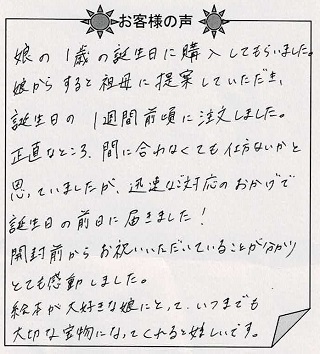 お客様の声
娘の1歳の誕生日に購入してもらいました。
娘からすると祖母に提案していただき、
誕生日の1週間前頃に注文しました。
正直なところ、間に合わなくても仕方ないかと
思っていましたが、迅速なご対応のおかげで
誕生日の前日に届きました!
開封前からお祝いいただいていることが分かり
とても感動しました。
絵本が大好きな娘にとって、いつまでも
大切な宝物になってくれると嬉しいです。